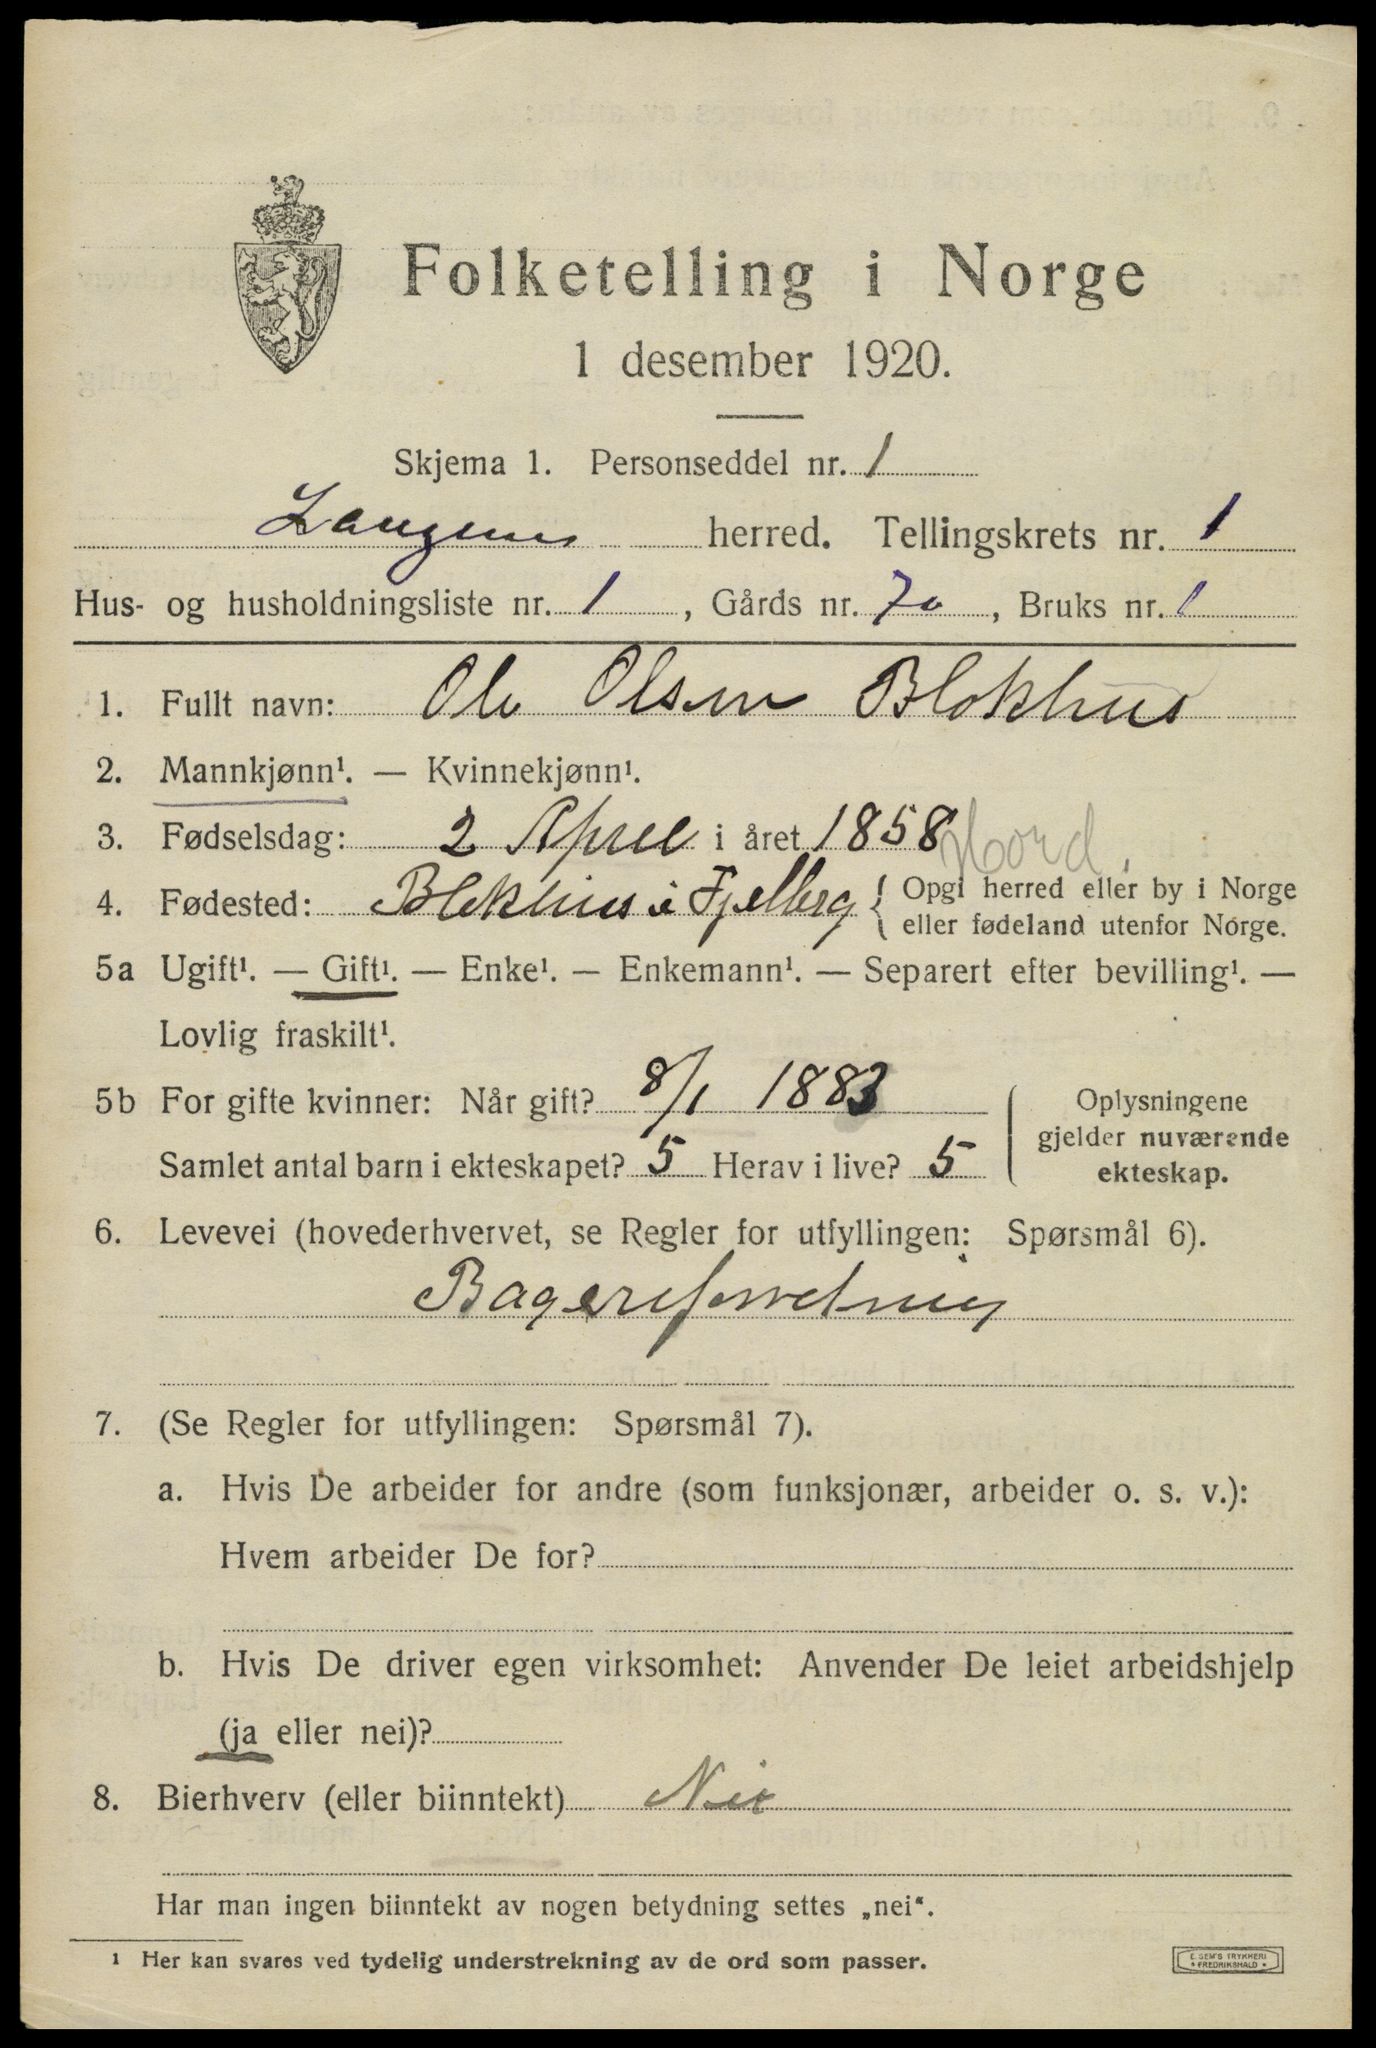 Folketelling i Norge
1 desember 1920.
Skjema 1. Personseddel nr. 1
Langenes herred. Tellingskrets nr. 1
Hus- og husholdningsliste nr. 1, Gårds nr. 70, Bruks nr. 1
1. Fullt navn: Ole Olsen Blokhus
2. Mannkjønn¹. — Kvinnekjønn¹.
3. Fødselsdag: 2 April i året 1858
Hord.
4. Fødested: Blokhus i Fjelberg { Opgi herred eller by i Norge
eller fødeland utenfor Norge.
5a Ugift¹. — Gift¹. — Enke¹. — Enkemann¹. — Separert efter bevilling¹. —
Lovlig fraskilt¹.
5b For gifte kvinner: Når gift? 8/1 1883
Samlet antal barn i ekteskapet? 5 Herav i live? 5
Oplysningene
gjelder nuværende
ekteskap.
6. Levevei (hovederhvervet, se Regler for utfyllingen: Spørsmål 6).
Bageriforretning
7. (Se Regler for utfyllingen: Spørsmål 7).
a. Hvis De arbeider for andre (som funksjonær, arbeider o. s. v.):
Hvem arbeider De for?
b. Hvis De driver egen virksomhet: Anvender De leiet arbeidshjelp
(ja eller nei)?
8. Bierhverv (eller biinntekt) Nei
Har man ingen biinntekt av nogen betydning settes „nei“.
¹ Her kan svares ved tydelig understrekning av de ord som passer.
E. SEM'S TRYKKERI
* FREDRIKSHALD *